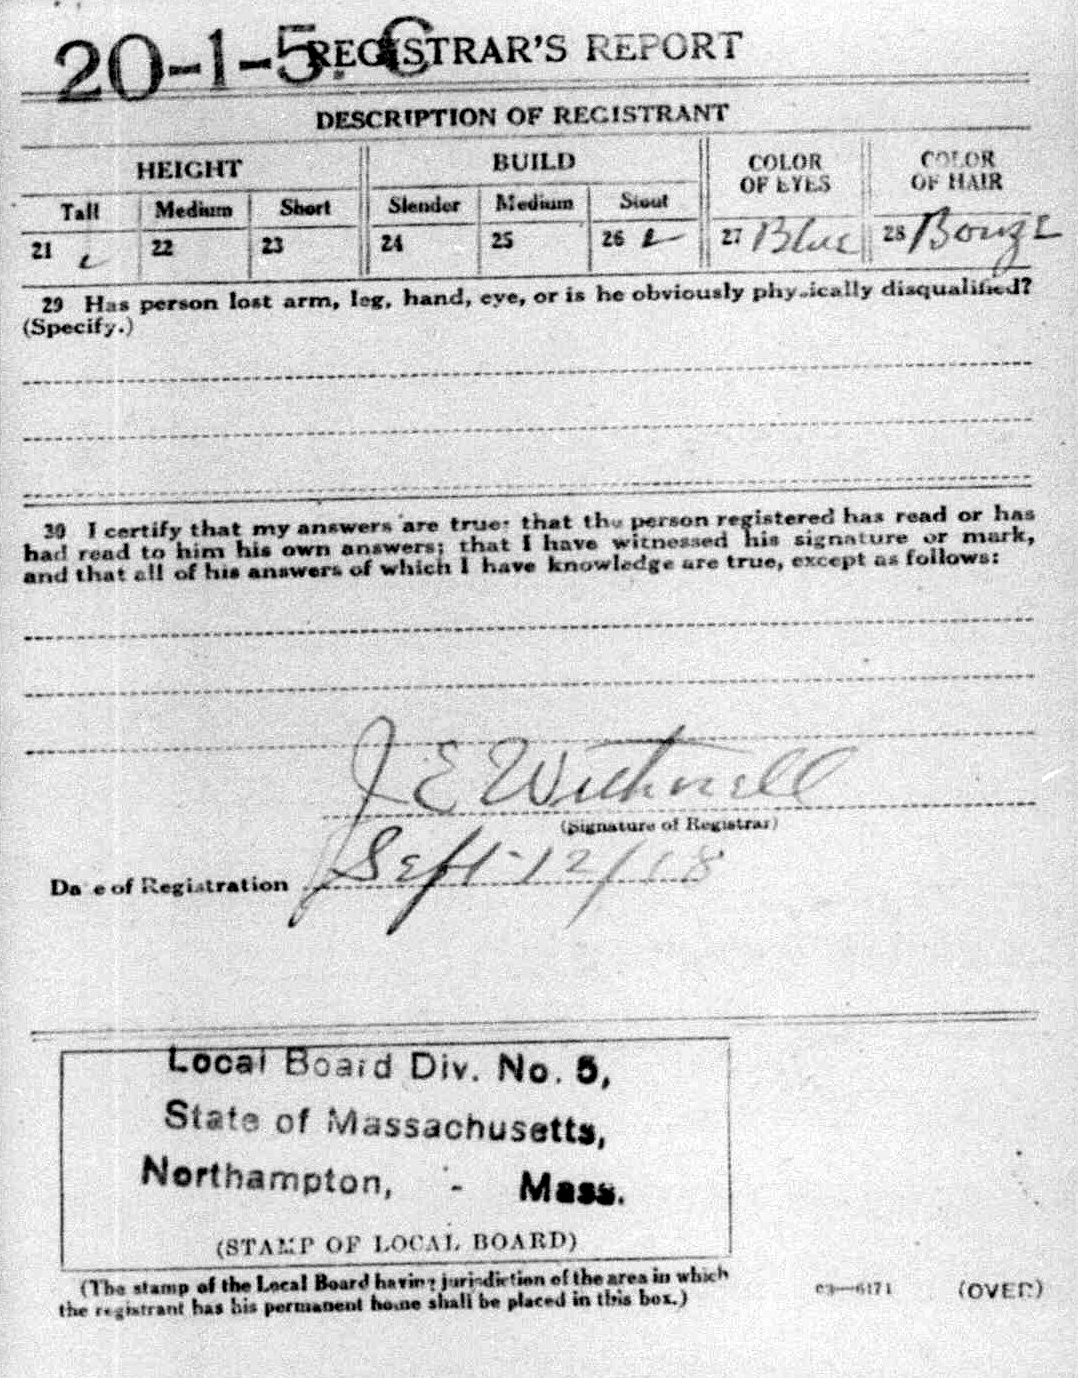 20-1-5. C
REGISTRAR'S REPORT
DESCRIPTION OF REGISTRANT
HEIGHT BUILD COLOR OF EYES COLOR OF HAIR
Tall Medium Short Slender Medium Stout
21 22 23 24 25 26 27 Blue 28
29 Has person lost arm, leg, hand, eye, or is he obviously physically disqualified?
(Specify.)
30 I certify that my answers are true; that the person registered has read or has
had read to him his own answers; that I have witnessed his signature or mark,
and that all of his answers of which I have knowledge are true, except as follows:
J E Withnell
(Signature of Registrar)
Date of Registration Sept-12/18
Local Board Div. No. 5,
State of Massachusetts,
Northampton, - Mass.
(STAMP OF LOCAL BOARD)
(The stamp of the Local Board having jurisdiction of the area in which
the registrant has his permanent home shall be placed in this box.)
03—6171 (OVER)